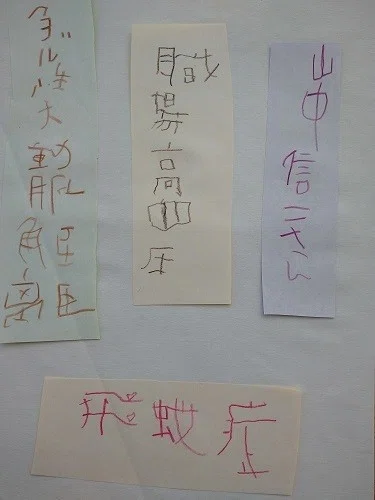 山中信二さん
職場高血圧
急性大動脈解離
飛蚊症